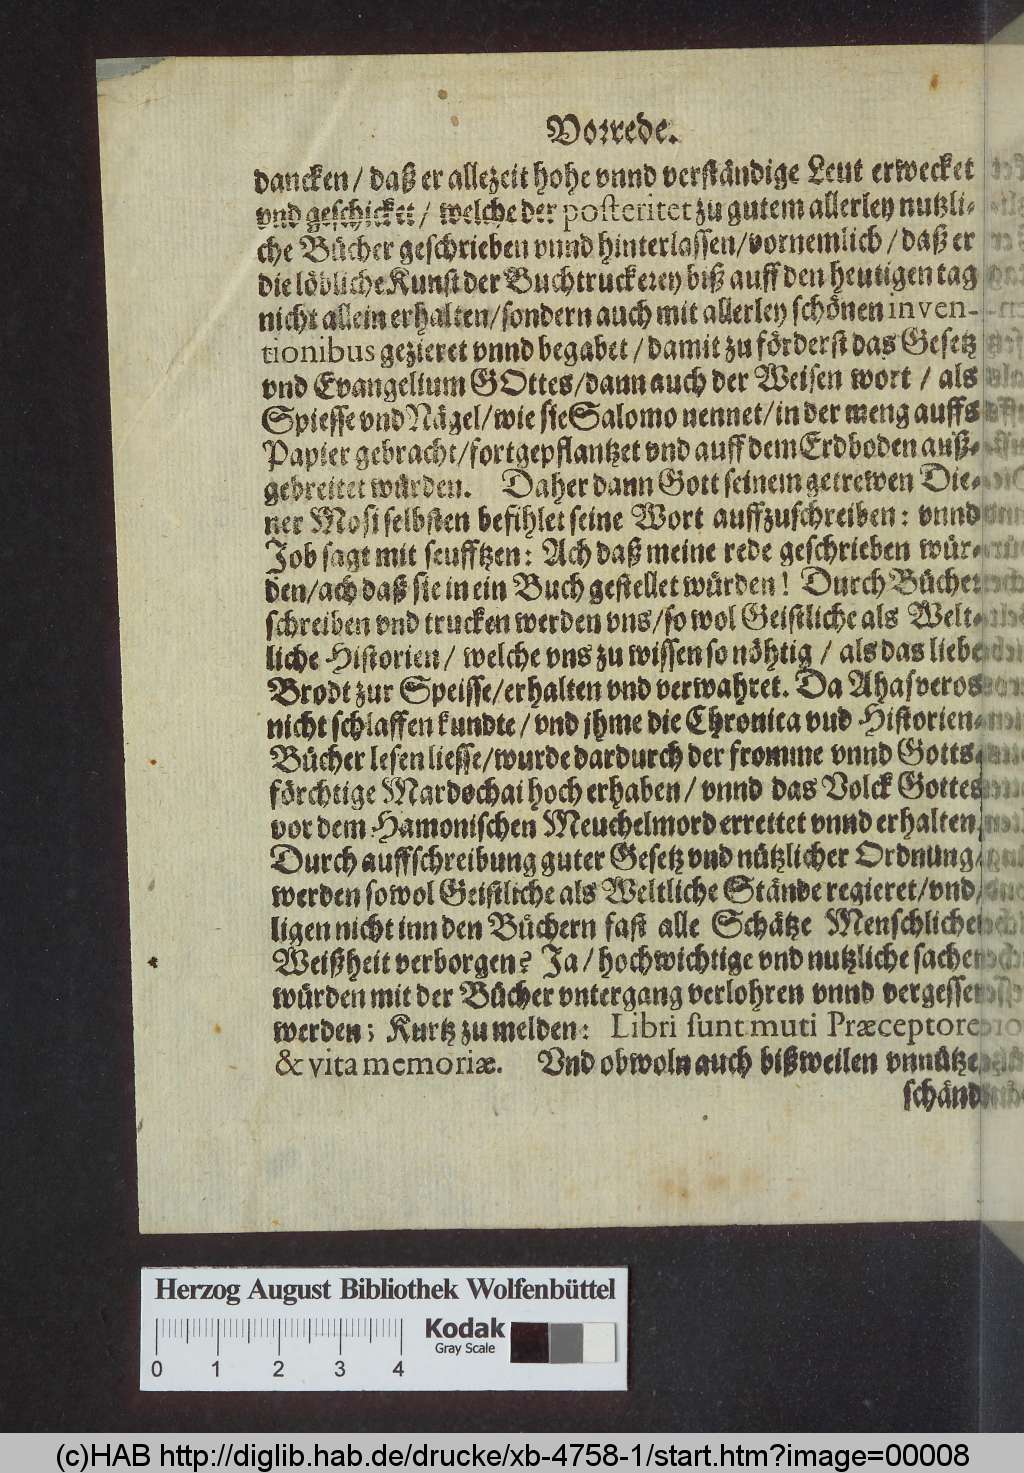 Vorrede.
dancken / daß er allezeit hohe vnnd verständige Leut erwecket
vnd geschicket / welche der posteritet zu gutem allerley nutzli-
che Bücher geschrieben vnnd hinterlassen / vornemlich / daß er
die löbliche Kunst der Buchtruckerey biß auff den heutigen tag
nicht allein erhalten / sondern auch mit allerley schönen inven-
tionibus gezieret vnnd begabet / damit zu förderst das Gesetz
vnd Evangelium GOttes / dann auch der Weisen wort / als
Spiesse vnd Nägel / wie sie Salomo nennet / in der meng auffs
Papier gebracht / fortgepflantzet vnd auff dem Erdboden auß-
gebreitet würden. Daher dann Gott seinem getrewen Die-
ner Mosi selbsten befihlet seine Wort auffzuschreiben: vnnd
Job sagt mit seufftzen: Ach daß meine rede geschrieben wür-
den / ach daß sie in ein Buch gestellet würden! Durch Bücher
schreiben vnd trucken werden vns / so wol Geistliche als Welt-
liche Historien / welche vns zu wissen so nöhtig / als das liebe
Brodt zur Speisse / erhalten vnd verwahret. Da Ahasveros
nicht schlaffen kundte / vnd jhme die Chronica vud Historien-
Bücher lesen liesse / wurde dardurch der fromme vnnd Gotts-
förchtige Mardochai hoch erhaben / vnnd das Volck Gottes
vor dem Hamonischen Meuchelmord errettet vnnd erhalten.
Durch auffschreibung guter Gesetz vnd nützlicher Ordnung /
werden sowol Geistliche als Weltliche Stände regieret / vnd
ligen nicht inn den Büchern fast alle Schätze Menschlicher
Weißheit verborgen? Ja / hochwichtige vnd nutzliche sachen
würden mit der Bücher vntergang verlohren vnnd vergessen
werden; Kurtz zu melden: Libri sunt muti Præceptores
& vita memoriæ. Vnd obwoln auch bißweilen vnnütze
schänd
Herzog August Bibliothek Wolfenbüttel
Kodak
Gray Scale
0 1 2 3 4
(c)HAB http://diglib.hab.de/drucke/xb-4758-1/start.htm?image=00008